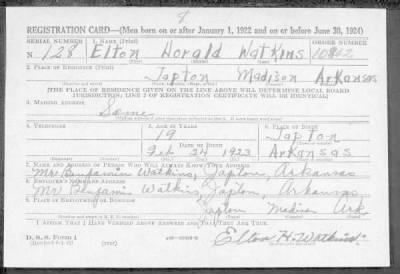 REGISTRATION CARD—(Men born on or after January 1, 1922 and on or before June 30, 1924)
SERIAL NUMBER 1. NAME (Print) ORDER NUMBER
N 128 Elton Horald Watkins 10842
(First) (Middle) (Last)
2. PLACE OF RESIDENCE (Print)
Japton Madison Arkansas
[THE PLACE OF RESIDENCE GIVEN ON THE LINE ABOVE WILL DETERMINE LOCAL BOARD
JURISDICTION; LINE 2 OF REGISTRATION CERTIFICATE WILL BE IDENTICAL]
3. MAILING ADDRESS
Same
4. TELEPHONE 5. AGE IN YEARS 6. PLACE OF BIRTH
19 Japton
DATE OF BIRTH
Feb 24 1923 Arkansas
7. NAME AND ADDRESS OF PERSON WHO WILL ALWAYS KNOW YOUR ADDRESS
Mr Benjamin Watkins, Japton, Arkansas
8. EMPLOYER'S NAME AND ADDRESS
Mr Benjamin Watkins, Japton, Arkansas
9. PLACE OF EMPLOYMENT OR BUSINESS
Japton Madison Ark.
I AFFIRM THAT I HAVE VERIFIED ABOVE ANSWERS AND THAT THEY ARE TRUE.
D. S. S. Form 1
(over)
Elton H. Watkins